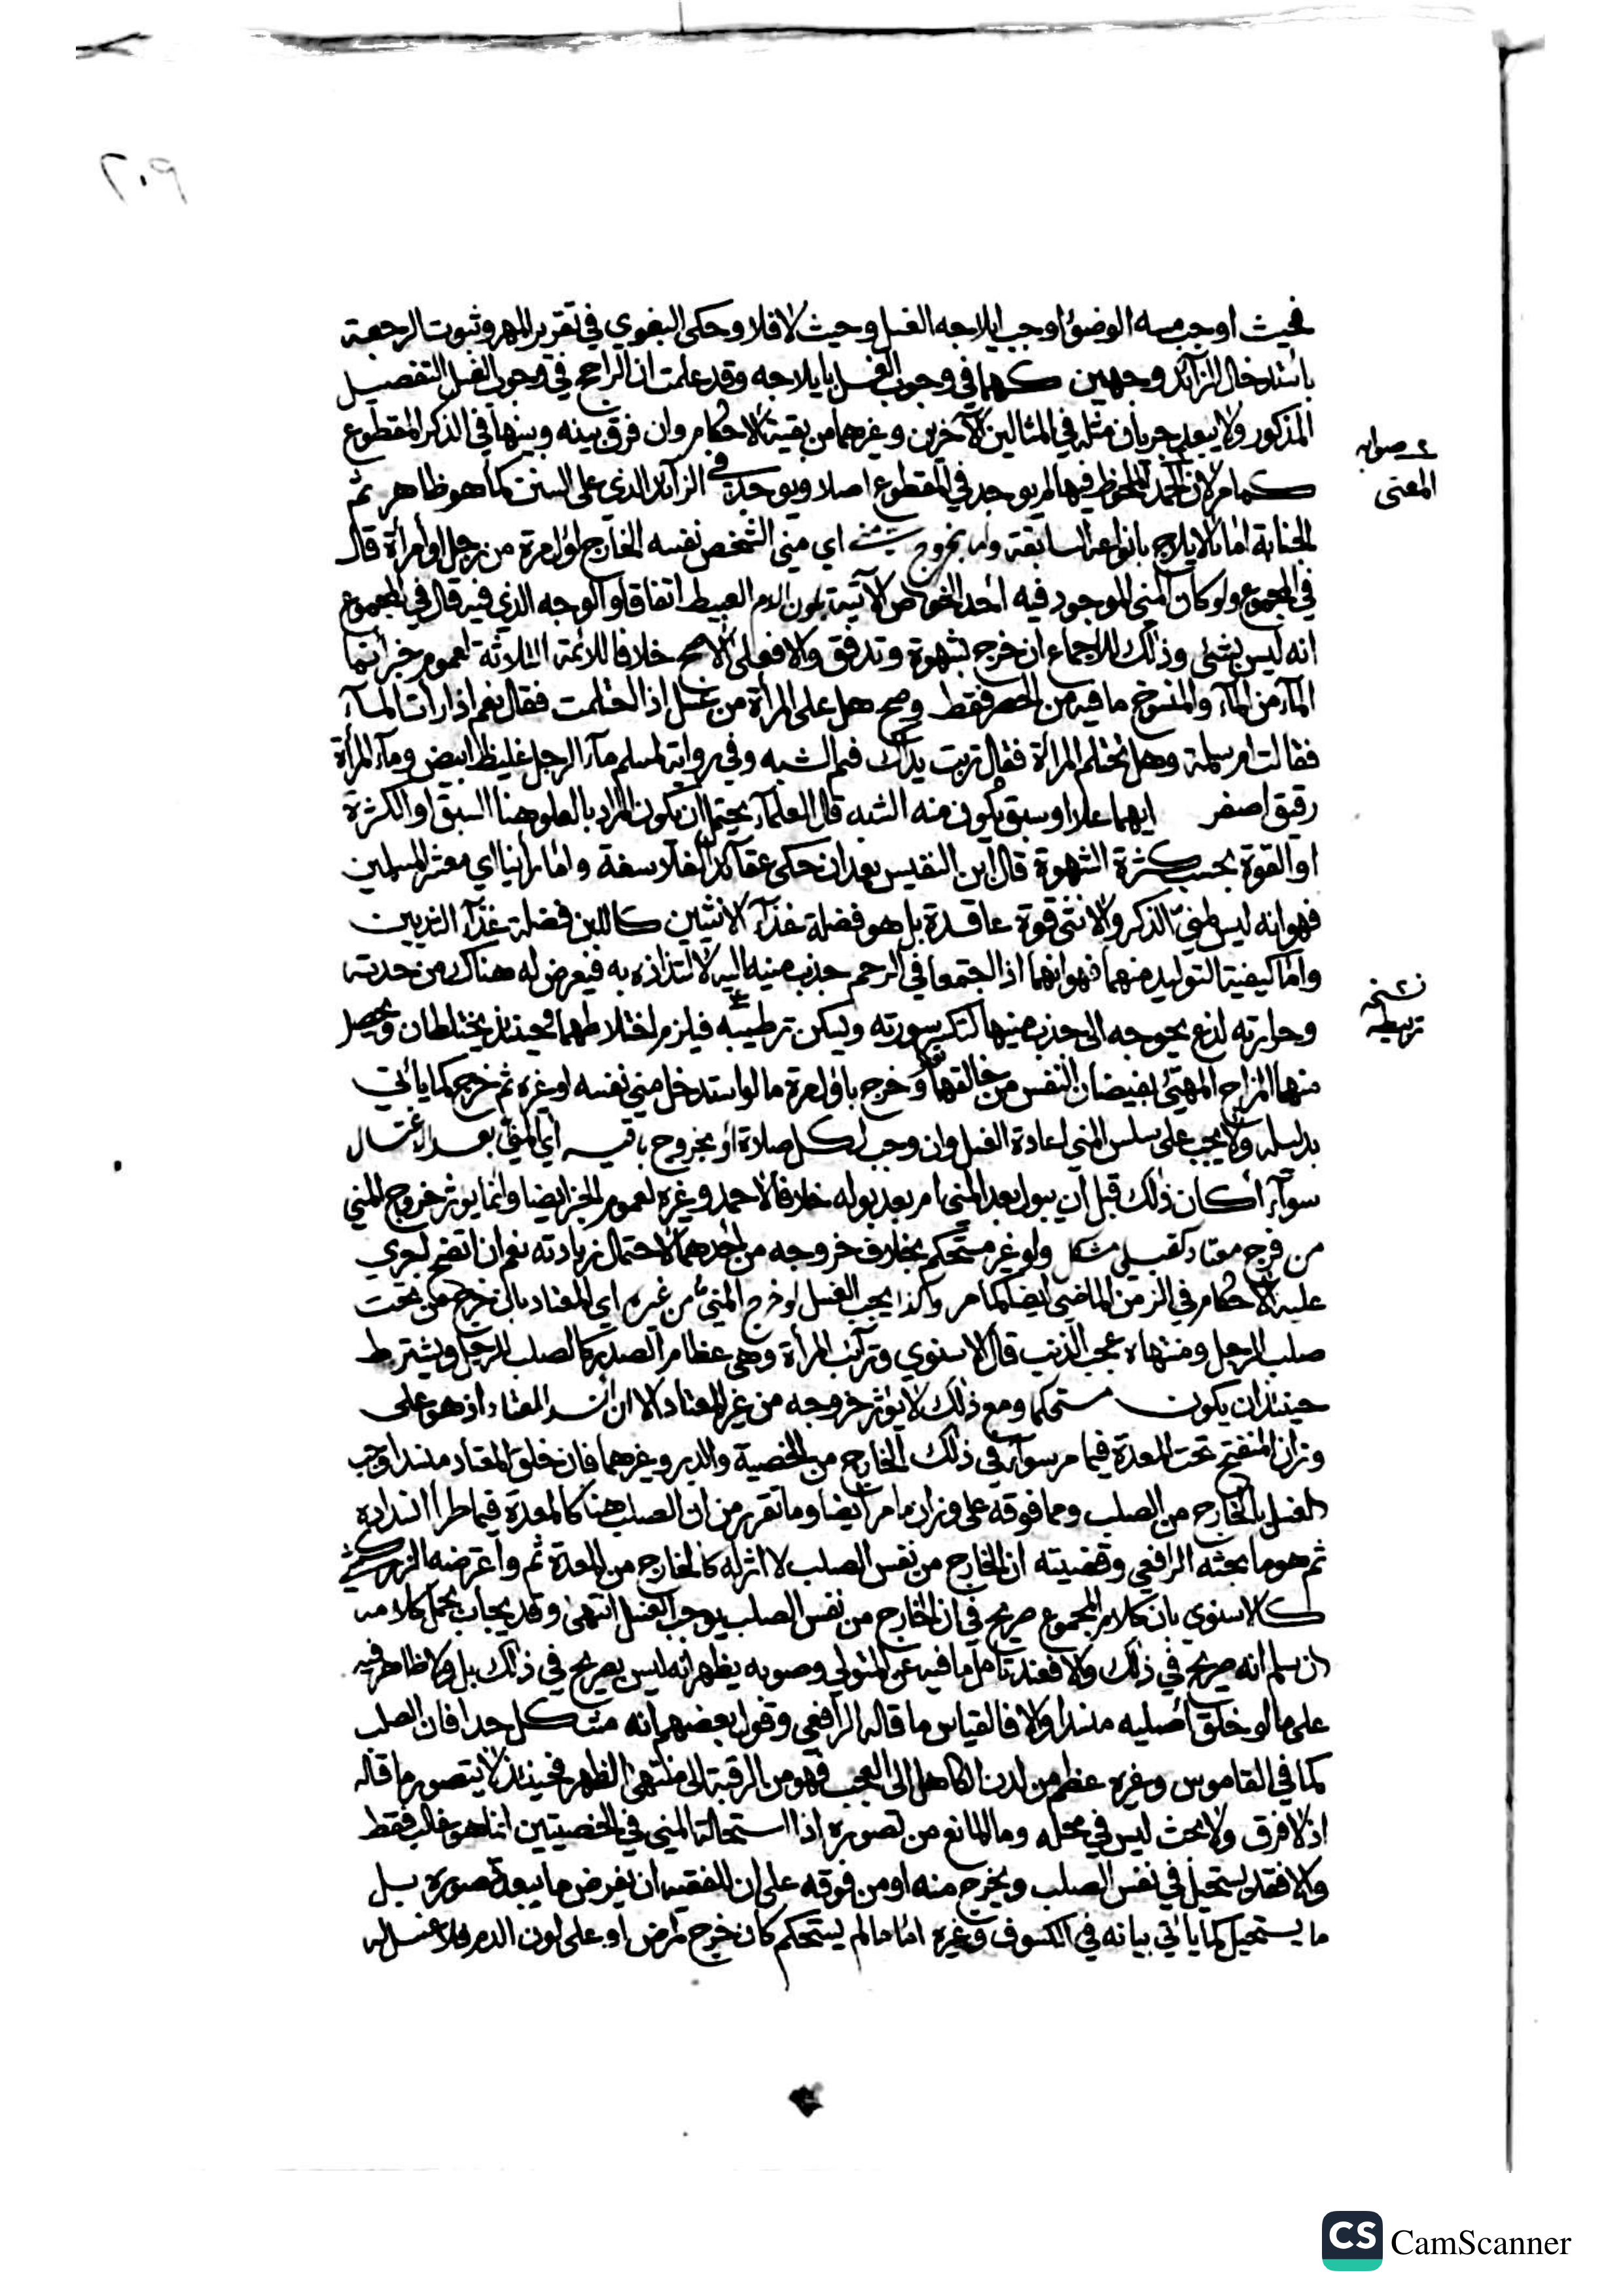 ٢٠٩
فحيث اوجب مسه الوضوٴ اوجب ايلاجه الغسل وحيث لا فلا وحكى البغوي في تقرير المهر وثبوت الرجعة
باستدخال الزائد وجهين كهما في وجوب الغسل بايلاجه وقد علمت ان الراجح في وجوب الغسل التفصيل
المذكور ولا يبعد جريان مثله في المثالين الآخرين وغيرهما من بقية الاحكام وان فرق بينه وبينها في الذكر المقطوع
كما مر لان الملحوظ فيها لم يوجد في المقطوع اصلا ويوجد في الزائد الذي على السنن كما هو ظاهر ثم
الجنابة اما بالايلاج بانواعه السابقة واما بخروج منيه اي مني الشخص نفسه الخارج اول مرة من رجل او امرأة قال
في المجموع ولو كان المني الموجود فيه احد الخواص الآتية بلون الدم العبيط اتفاقا والوجه الذي فيه قال في المجموع
انه ليس بشئ وذلك للاجماع ان خرج بشهوة وتدفق والا فعلى الاصح خلافا للائمة الثلاثة لعموم خبر انما
المآء من المآء والمنسوخ ما فيه من الحصر فقط وصح هل على المرأة من غسل اذا احتلمت فقال نعم اذا رأت المآء
فقالت ام سلمة وهل تحتلم المرأة فقال تربت يداك فبم الشبه وفي رواية لمسلم مآء الرجل غليظ ابيض ومآء المرأة
رقيق اصفر ايهما علا او سبق يكون منه الشبه قال العلمآء يحتمل ان يكون المراد بالعلو هنا السبق او الكثرة
او القوة بحسب كثرة الشهوة قال ابن النفيس بعد ان حكى عقائد الفلاسفة واما راينا اي معشر المسلمين
فهو انه ليس لمني الذكر والانثى قوة عاقدة بل هو فضلة غذآء الانثيين كاللبن فضلة غذآء الثديين
واما كيفية التوليد منهما فهو انهما اذا اجتمعا في الرحم جذب منيه اليه لالتذاذه به فيعرض له هناك من حدته
وحرارته لذع يحوجه الى جذب منيها لتكسير سورته وليكن ترطيبه فيلزم اختلاطهما فحينئذ يختلطان ويحصل
منهما المزاج المهيئ لفيضان النفس من خالقها وخرج باول مرة ما لو استدخل مني نفسه او غيره ثم خرج كما ياتي
بدليله ولا يجب على سلس المني اعادة الغسل وان وجب لكل صلاة او بخروج باقيه اي المني بعد الاغتسال
سوآء أكان ذلك قبل ان يبول بعد المني ام بعد بوله خلافا لاحمد وغيره لعموم الخبر ايضا وانما يوثر خروج المني
من فرج معتاد كقبلي مشكل ولو غير مستحكم بخلاف خروجه من احدهما لاحتمال زيادته نعم ان اتضح اجري
عليه الاحكام في الزمن الماضي ايضا كما مر وكذا يجب الغسل لو خرج المني من غيره اي المعتاد بان خرج من تحت
صلب الرجل ومنتهاه عجب الذنب قال الاسنوي وترائب المرأة وهي عظام الصدر كالصلب للرجل ويشترط
حينئذ ان يكون مستحكما ومع ذلك لا يوثر خروجه من غير المعتاد الا ان انسد المعتاد اذ هو على
وزان المنفتح تحت المعدة فيما مر سوآء في ذلك الخارج من الخصية والدبر وغيرهما فان خلق المعتاد منسدا وجب
الغسل بالخارج من الصلب ومما فوقه على وزان ما مر ايضا وما تقرر من ان الصلب هنا كالمعدة فيما طرا انسداده
ثم هو ما بحثه الرافعي وقضيته ان الخارج من نفس الصلب لا اثر له كالخارج من المعدة ثم واعترضه الزركشي
كالاسنوي بان كلام المجموع صريح في ان الخارج من نفس الصلب يوجب الغسل انتهى وقد يجاب بحمل كلامه
ان سلم انه صريح في ذلك والا فعند تامل ما فيه عن المتولي وصوبه يظهر انه ليس بصريح في ذلك بل ولا ظاهر فيه
على ما لو خلق اصليه منسدا والا فالقياس ما قاله الرافعي وقول بعضهم انه مشكل جدا فان الصلب
كما في القاموس وغيره عظم من لدن الكاهل الى العجب فهو من الرقبة الى منتهى الظهر فحينئذ لا يتصور ما قاله
اذ لا فرق ولا بحث ليس في محله وما المانع من تصوره اذا استحالة المني في الخصيتين انما هو غالب فقط
والا فقد يستحيل في نفس الصلب ويخرج منه او من فوقه على ان للفقيه ان يفرض ما يبعد تصوره بل
ما يستحيل كما ياتي بيانه في الكسوف وغيره اما ما لم يستحكم كان خرج لمرض او على لون الدم فلا غسل به
صوابه
المعنى
نسخه
تربيطه
CS CamScanner